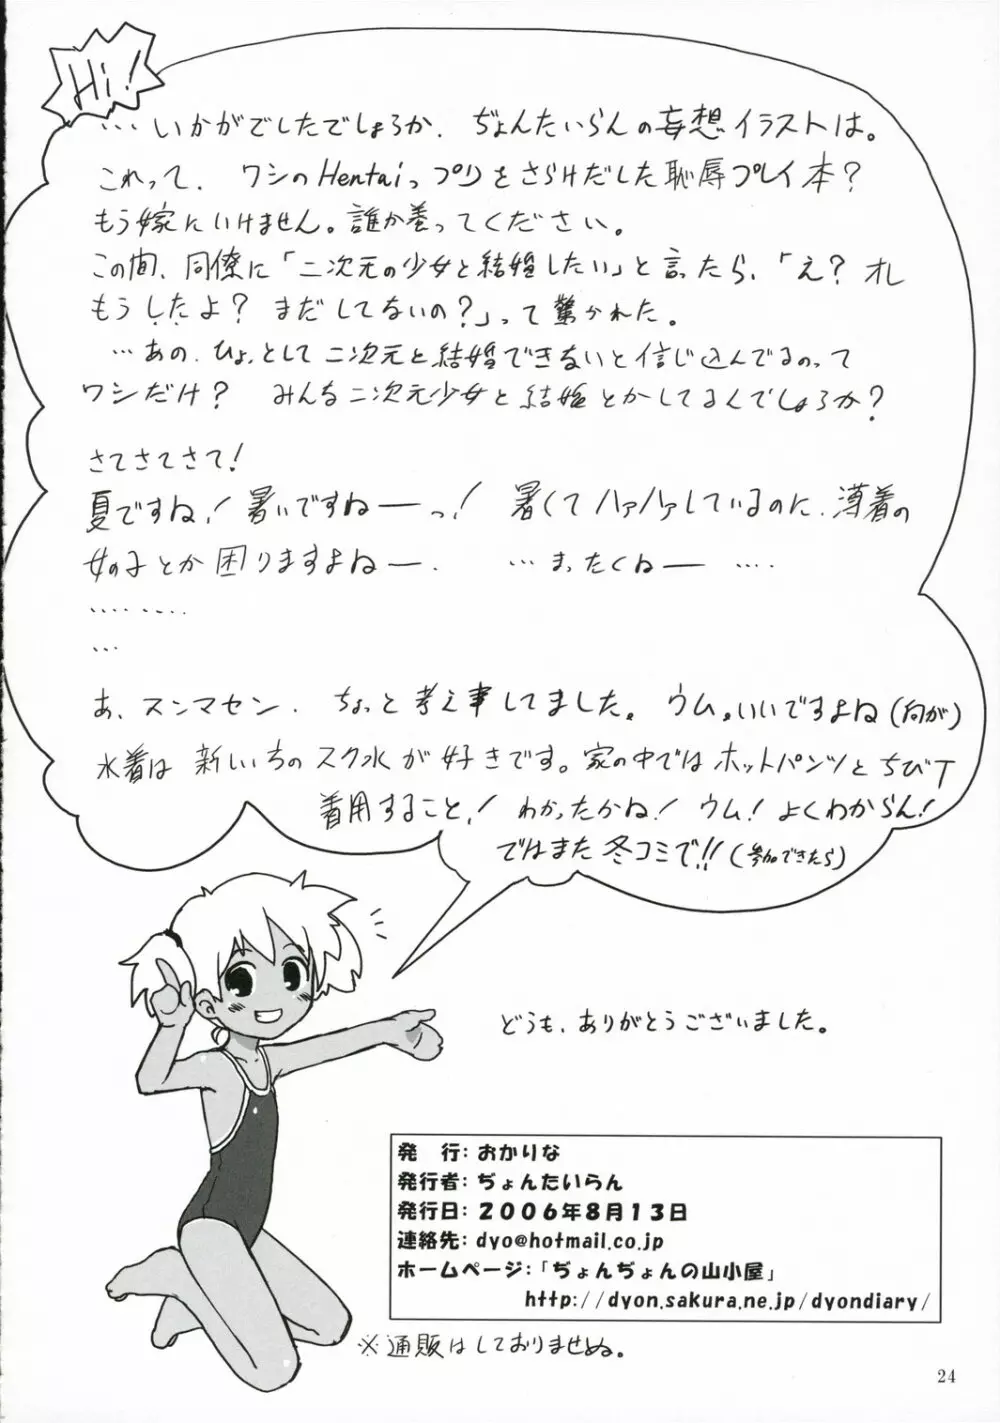 Hi!
…いかがでしたでしょろか.ぢょんたいらんの妄想イラストは。
これって.ワシのHentaiっプリをさらけだした恥辱プレイ本?
もう嫁にいけません。誰か巻ってください。
この間、同僚に「二次元の少女と結婚したい」と言ったら、「え?オレ
もうしたよ?まだしてないの?」って驚かれた。
…あの、ひょっとして二次元と結婚できないと信じ込んでるのって
ワシだけ?みんな二次元少女と結婚とかしてるんでしょろか?
さてさてさて!
夏ですね!暑いですねーっ!暑くてハァハァしているのに、薄着の
女の子とか困りますよねー.…まったくねー….
………..
…
あ、スンマセン.ちょっと考え事してました。ウム。いいですよね(何が)
水着は新しいちのスク水が好きです。家の中ではホットパンツとちびT
着用すること!わかったかね!ウム!よくわからん!
ではまた冬コミで!!(参加できたら)
どうも、ありがとうございました。
発　行:おかりな
発行者:ぢょんたいらん
発行日:2006年8月13日
連絡先:dyo@hotmail.co.jp
ホームページ:「ぢょんぢょんの山小屋」
http://dyon.sakura.ne.jp/dyondiary/
※通販はしておりませぬ。
24